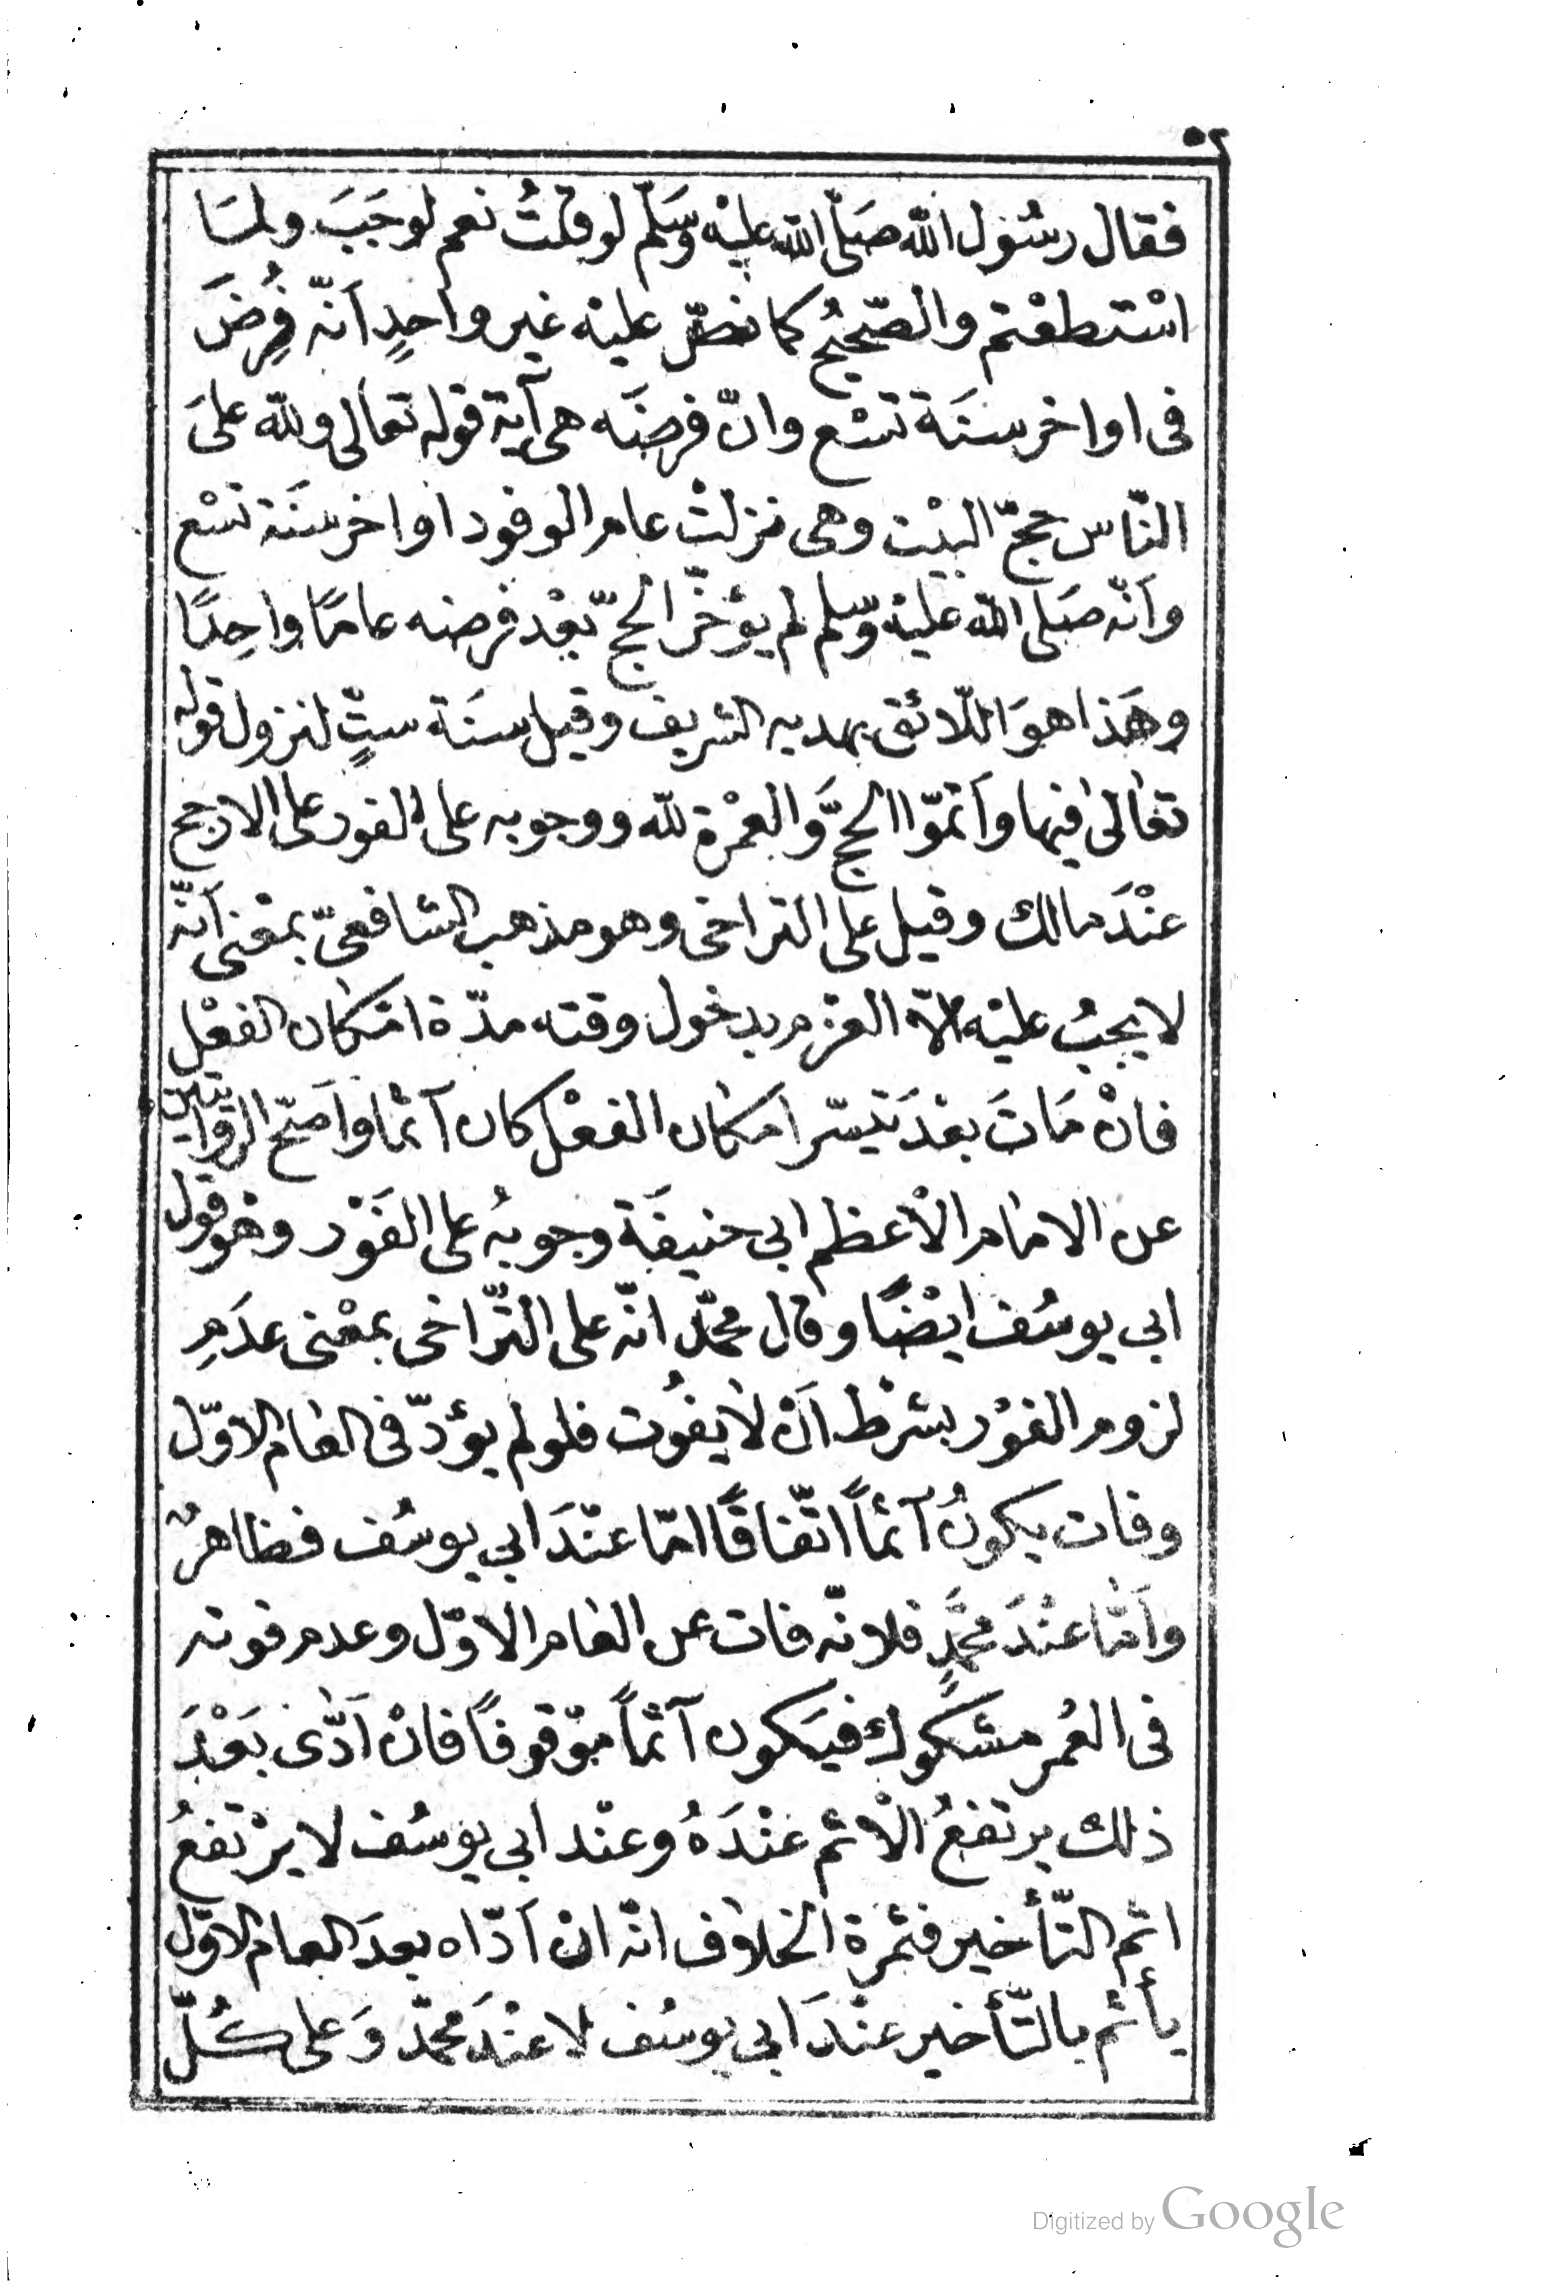 ٥٢
فقال رسُول الله صَلّى الله عليْه وَسَلّم لوقلتُ نعم لوجَبَ ولمَا
اسْتطعْتم والصّحيحُ كما نصّ عليْه غير واحِدٍ اَنّه فُرِضَ
فى اواخر سنَة تسْع وانّ فرضَه هى آية قوله تعالى ولله علىَ
النّاس حجّ البيْت وهى نزلتْ عام الوفود اواخر سنَة تسْع
واَنّه صَلى الله عليْه وسّلم لم يؤخّر الحجّ بعْد فرضه عامًا واحِدًا
وهَذا هوَ اللّائق بهديه الشريف وقيل سنَة ستٍّ لنزول قوله
تعَالىٰ فيها واَتمّوا الحجَّ وَالعمْرة لله ووجوبه على الفور على الارجح
عنْدَ مالك وقيل على التراخى وهو مذهب الشافعىّ بمعْنى اَنّه
لا يجبُ عليْه الّا العزم بدخول وقته مدّة امْكان الفعْل
فانْ مَاتَ بعْدَ تيسّر امكان الفعْل كان آثما واَصَحّ الرّوايتين
عن الامَام الاْعظم ابى حنيفَة وجوبُه على الفَوْر وهو قول
ابى يوسُف ايْضًا وقال محمّد انّه على التّراخى بمعْنى عدَمِ
لزوم الفوْر بشرْط اَنْ لاٰيفُوت فلو لم يؤدّ فى العَام الاوّل
وفات يكونُ آثماً اتّفاقًا امّا عنْدَ ابى يوسُف فظاهرٌ
واَمّا عنْدَ محمَّدٍ فلانّه فات عن العَام الاوّل وعدم فوته
فى العُمر مشكوك فيَكون آثماً موْقوفاً فانْ اَدّى بَعْدَ
ذلك يرتفعُ الْاثم عنْدَهُ وعنْد ابى يوسُف لا يرْتفعُ
اثم التّأخير فثمرة الخلاف انّه انْ اَدّاه بعدَ العام الاوّل
يأثم بالتّأخير عنْدَ ابى يوسُف لا عنْدَ محمّد وَعلى كُلّ
Digitized by Google